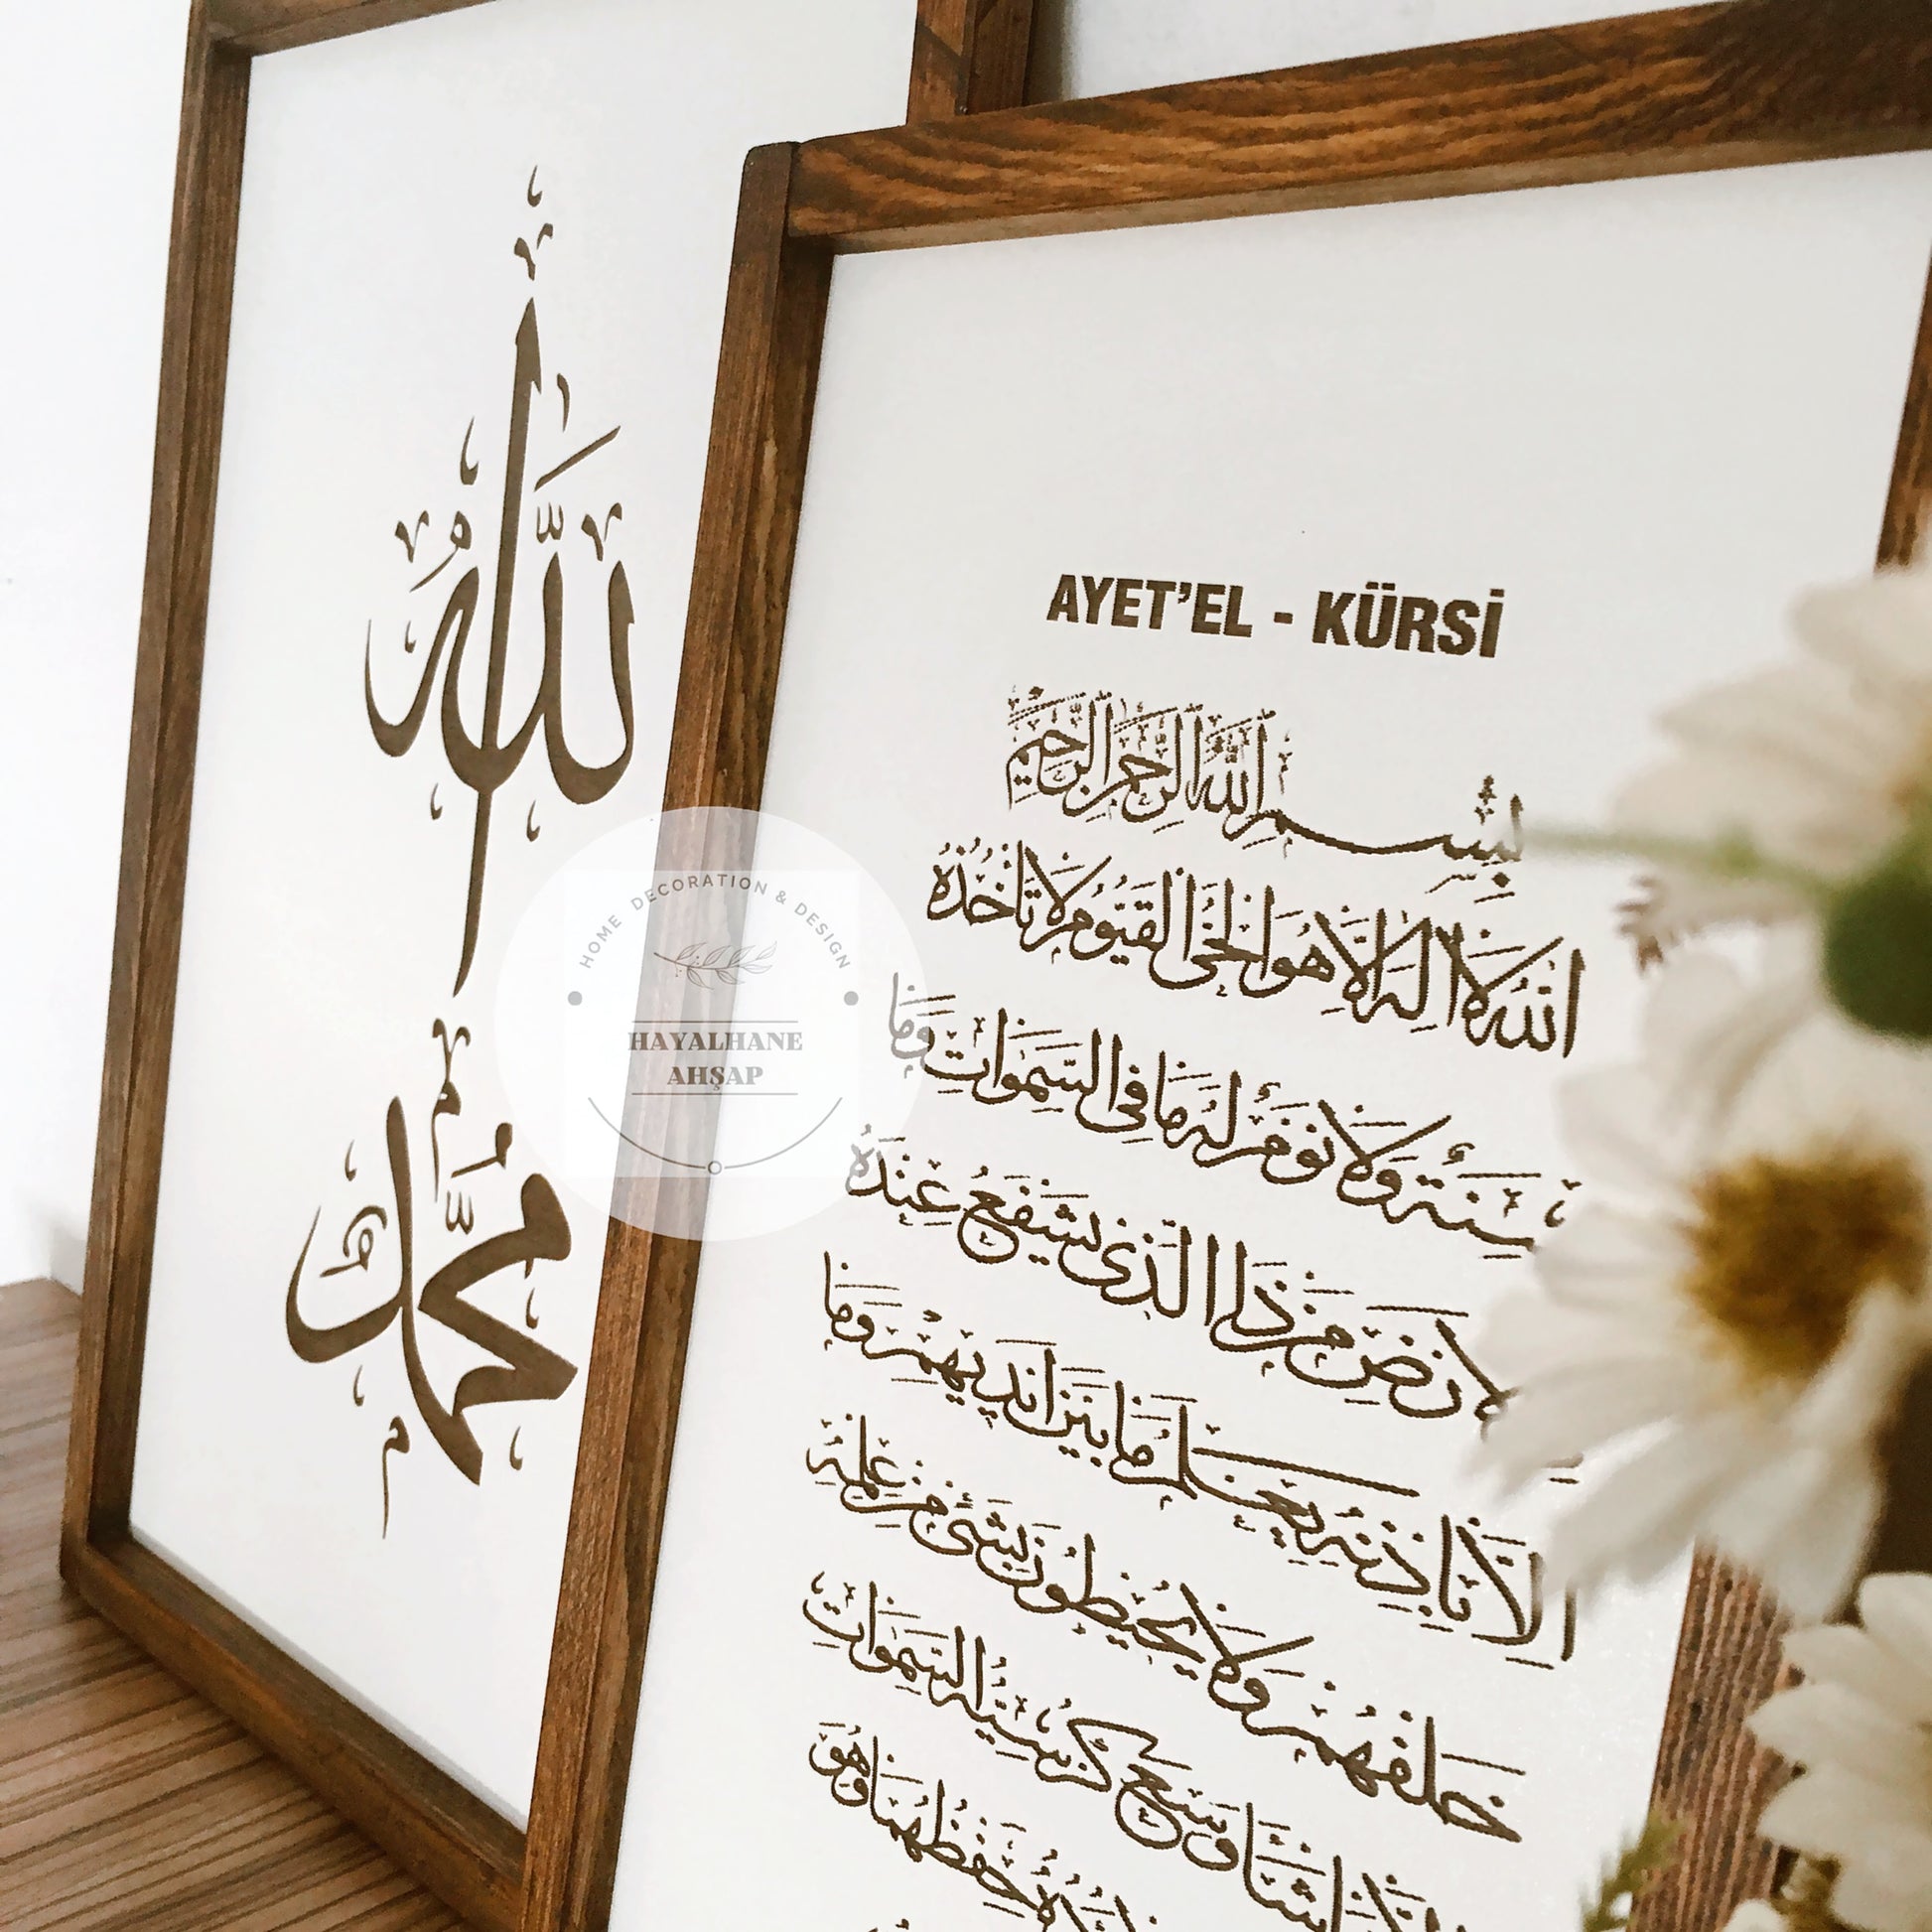 الله
محمد
AYET'EL - KÜRSİ
بِسْمِ اللّٰهِ الرَّحْمٰنِ الرَّحِيمِ
اَللّٰهُ لَا اِلٰهَ اِلَّا هُوَ الْحَيُّ الْقَيُّومُ لَا تَأْخُذُهُ
سِنَةٌ وَلَا نَوْمٌ لَهُ مَا فِي السَّمٰوَاتِ وَمَا
الْاَرْضِ مَنْ ذَا الَّذِي يَشْفَعُ عِنْدَهُ
اِلَّا بِاِذْنِهِ يَعْلَمُ مَا بَيْنَ اَيْدِيهِمْ وَمَا
خَلْفَهُمْ وَلَا يُحِيطُونَ بِشَيْءٍ مِنْ عِلْمِهِ
شَاءَ وَسِعَ كُرْسِيُّهُ السَّمٰوَاتِ
حِفْظُهُمَا وَهُوَ
HOME DECORATION & DESIGN
HAYALHANE
AHŞAP